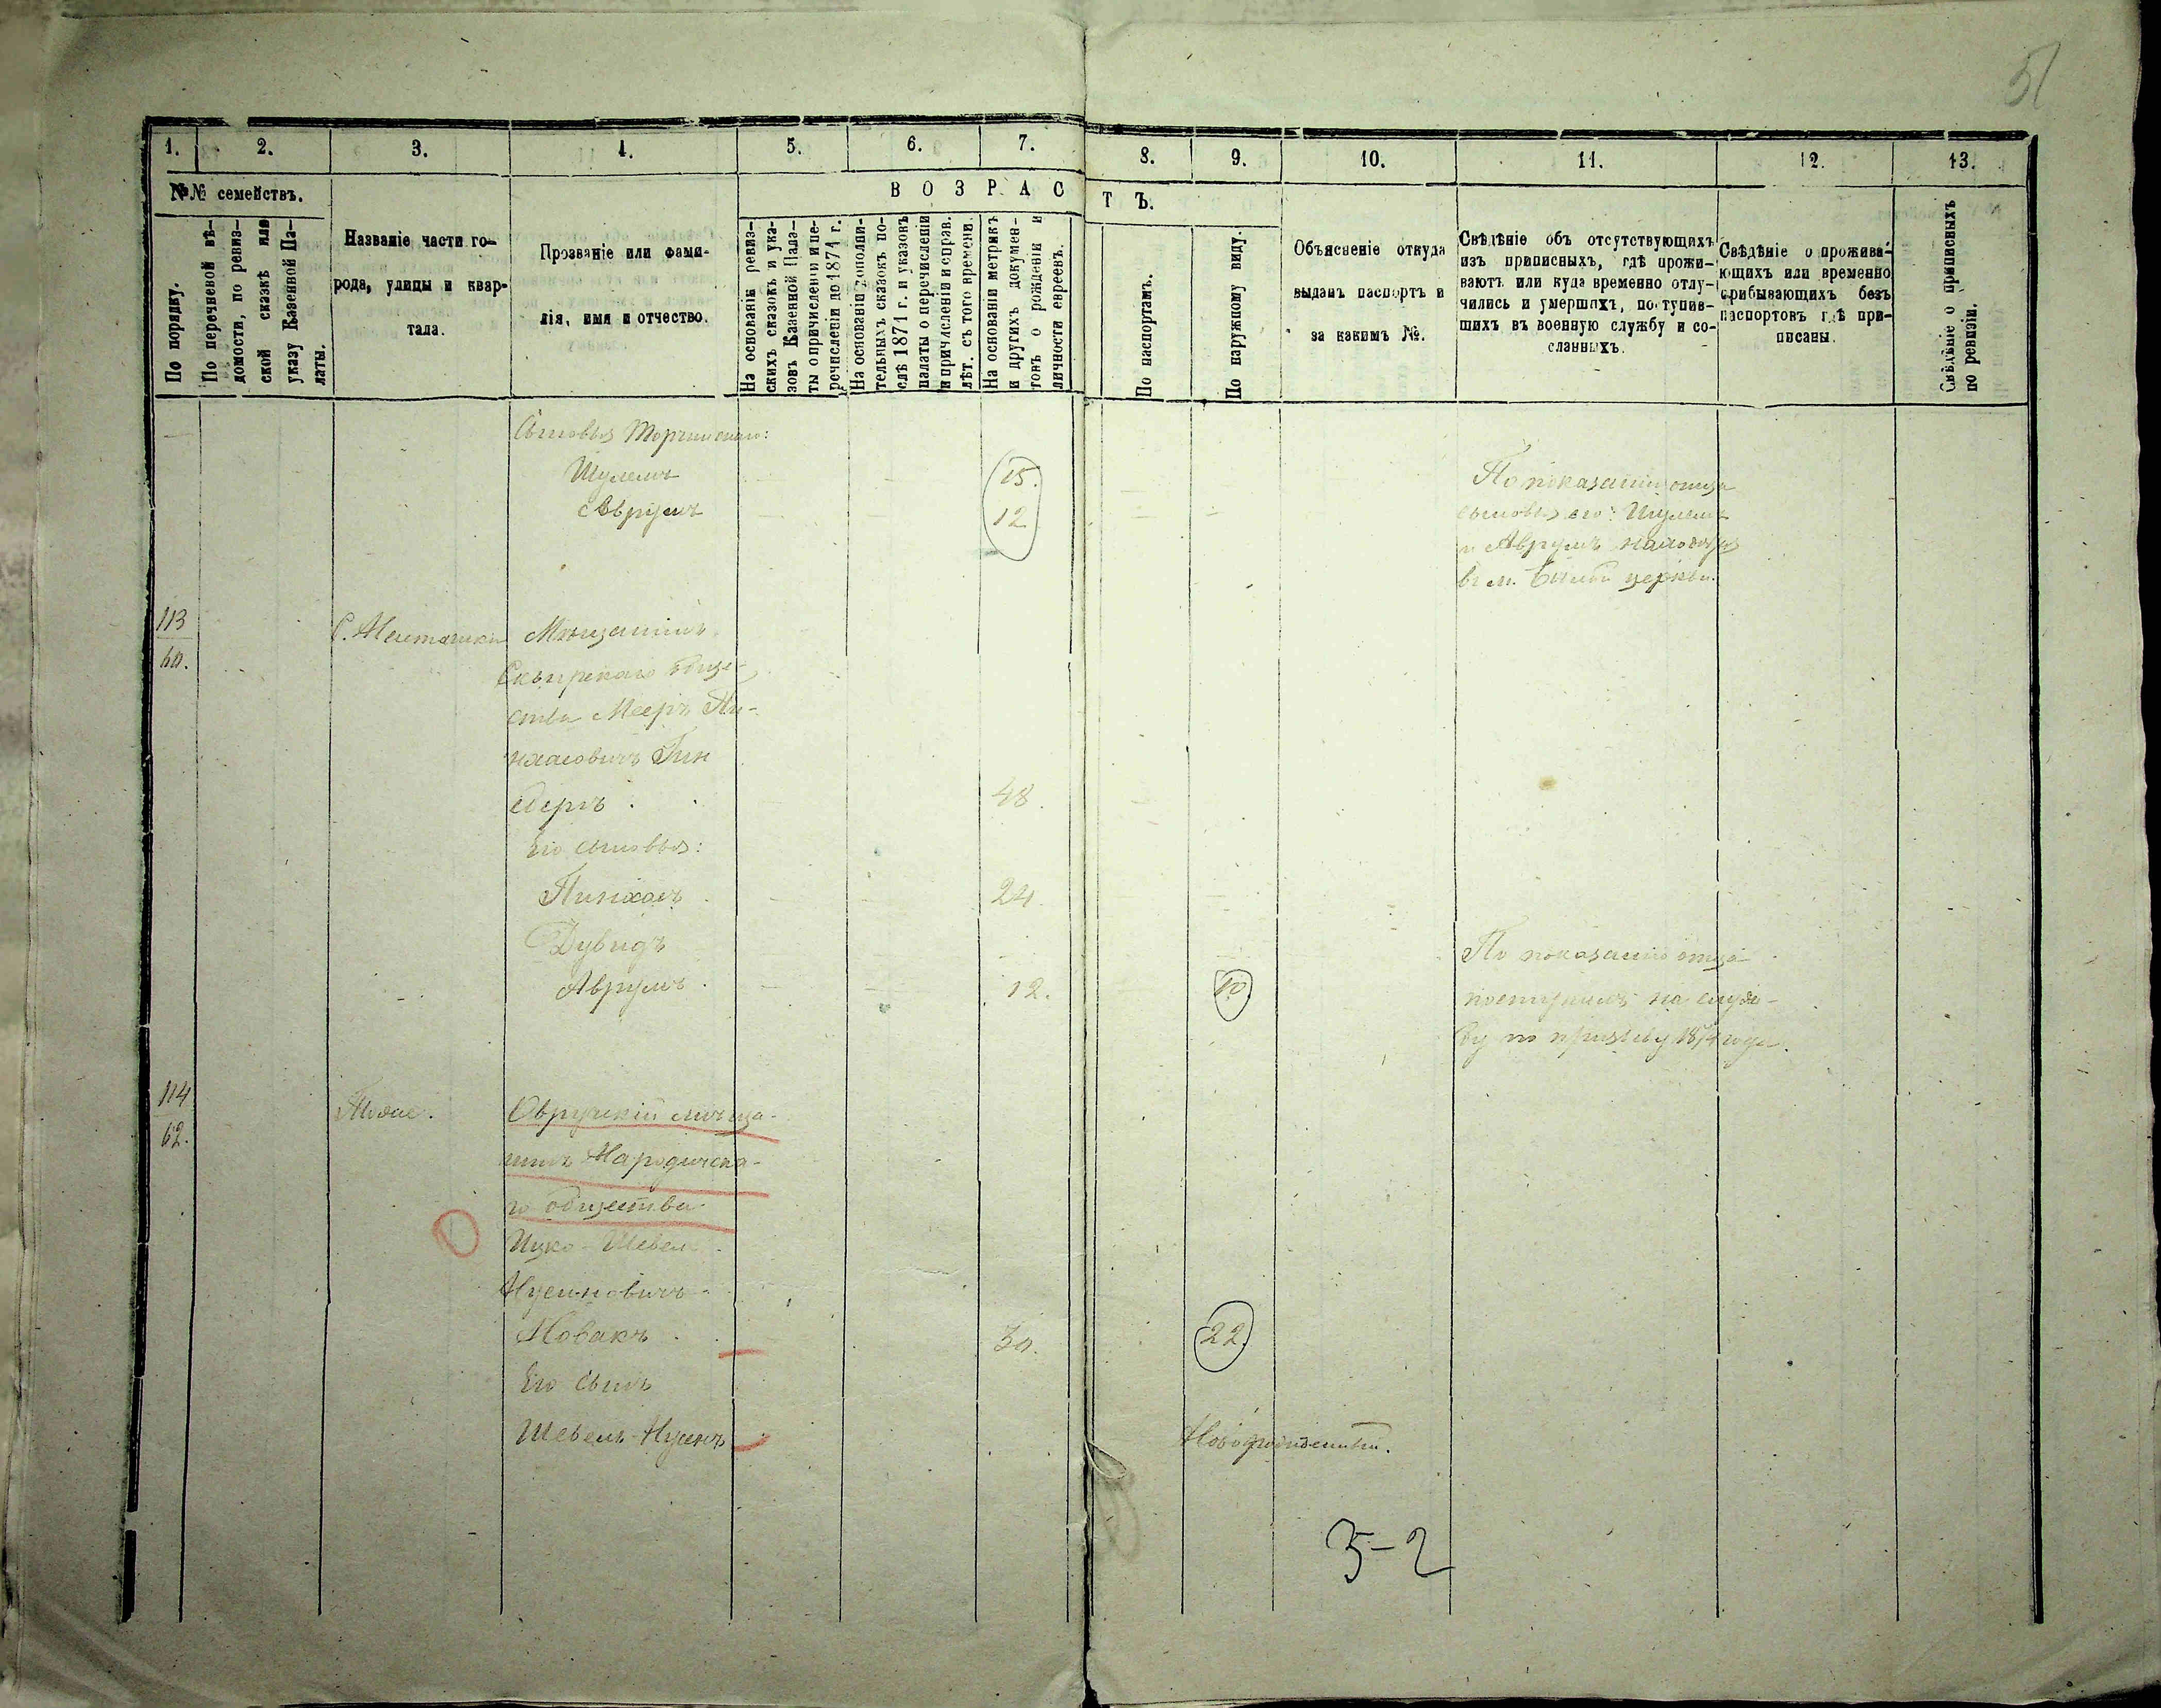 51
1. 2. 3. 4. 5. 6. 7. 8. 9. 10. 11. 12. 13.
№№ семействъ.
В О З Р А С Т Ъ.
По порядку.
По перечневой вѣ-
домости, по ревиз-
ской сказкѣ или
указу Казенной Па-
латы.
Названіе части го-
рода, улицы и квар-
тала.
Прозваніе или фами-
лія, имя и отчество.
На основаніи ревиз-
скихъ сказокъ и ука-
зовъ Казенной Пала-
ты о причисленіи и пе-
речисленіи до 1871 г.
На основаніи дополни-
тельныхъ сказокъ по-
слѣ 1871 г. и указовъ
палаты о перечисленіи
и причисленіи и справ.
лѣт. съ того времени.
На основаніи метрикъ
и другихъ докумен-
товъ о рожденіи и
личности евреевъ.
По паспортамъ.
По наружному виду.
Объясненіе откуда
выданъ паспортъ и
за какимъ №.
Свѣдѣніе объ отсутствующихъ
изъ приписныхъ, гдѣ прожи-
ваютъ или куда временно отлу-
чились и умершихъ, поступив-
шихъ въ военную службу и со-
сланныхъ.
Свѣдѣніе о прожива-
ющихъ или временно
прибывающихъ безъ
паспортовъ гдѣ при-
писаны.
Свѣдѣніе о приписныхъ
по ревизіи.
Сыновья
Шулемъ 15.
Аврумъ 12
По показанію отца
сыновья его: Шулемъ
и Аврумъ находятся
въ м. Бѣлой церкви.
113
60.
С. Мѣщанинъ
Сквирскаго обще-
ства Мееръ Пи-
нхасовичъ Гин
деръ 48.
Его сыновья:
Пинхасъ 24.
Дувидъ
Аврумъ 12. 10
По показанію отца
поступилъ на служ-
бу по призыву 1874 года.
114
62.
Тоже.
Овручскій мѣща-
нинъ Народичска-
го общества
Ицко-Шевель
Нусиновичъ
Новакъ 30. 22.
Его сынъ
Шевель-Нусинъ Новорожденный.
3-2